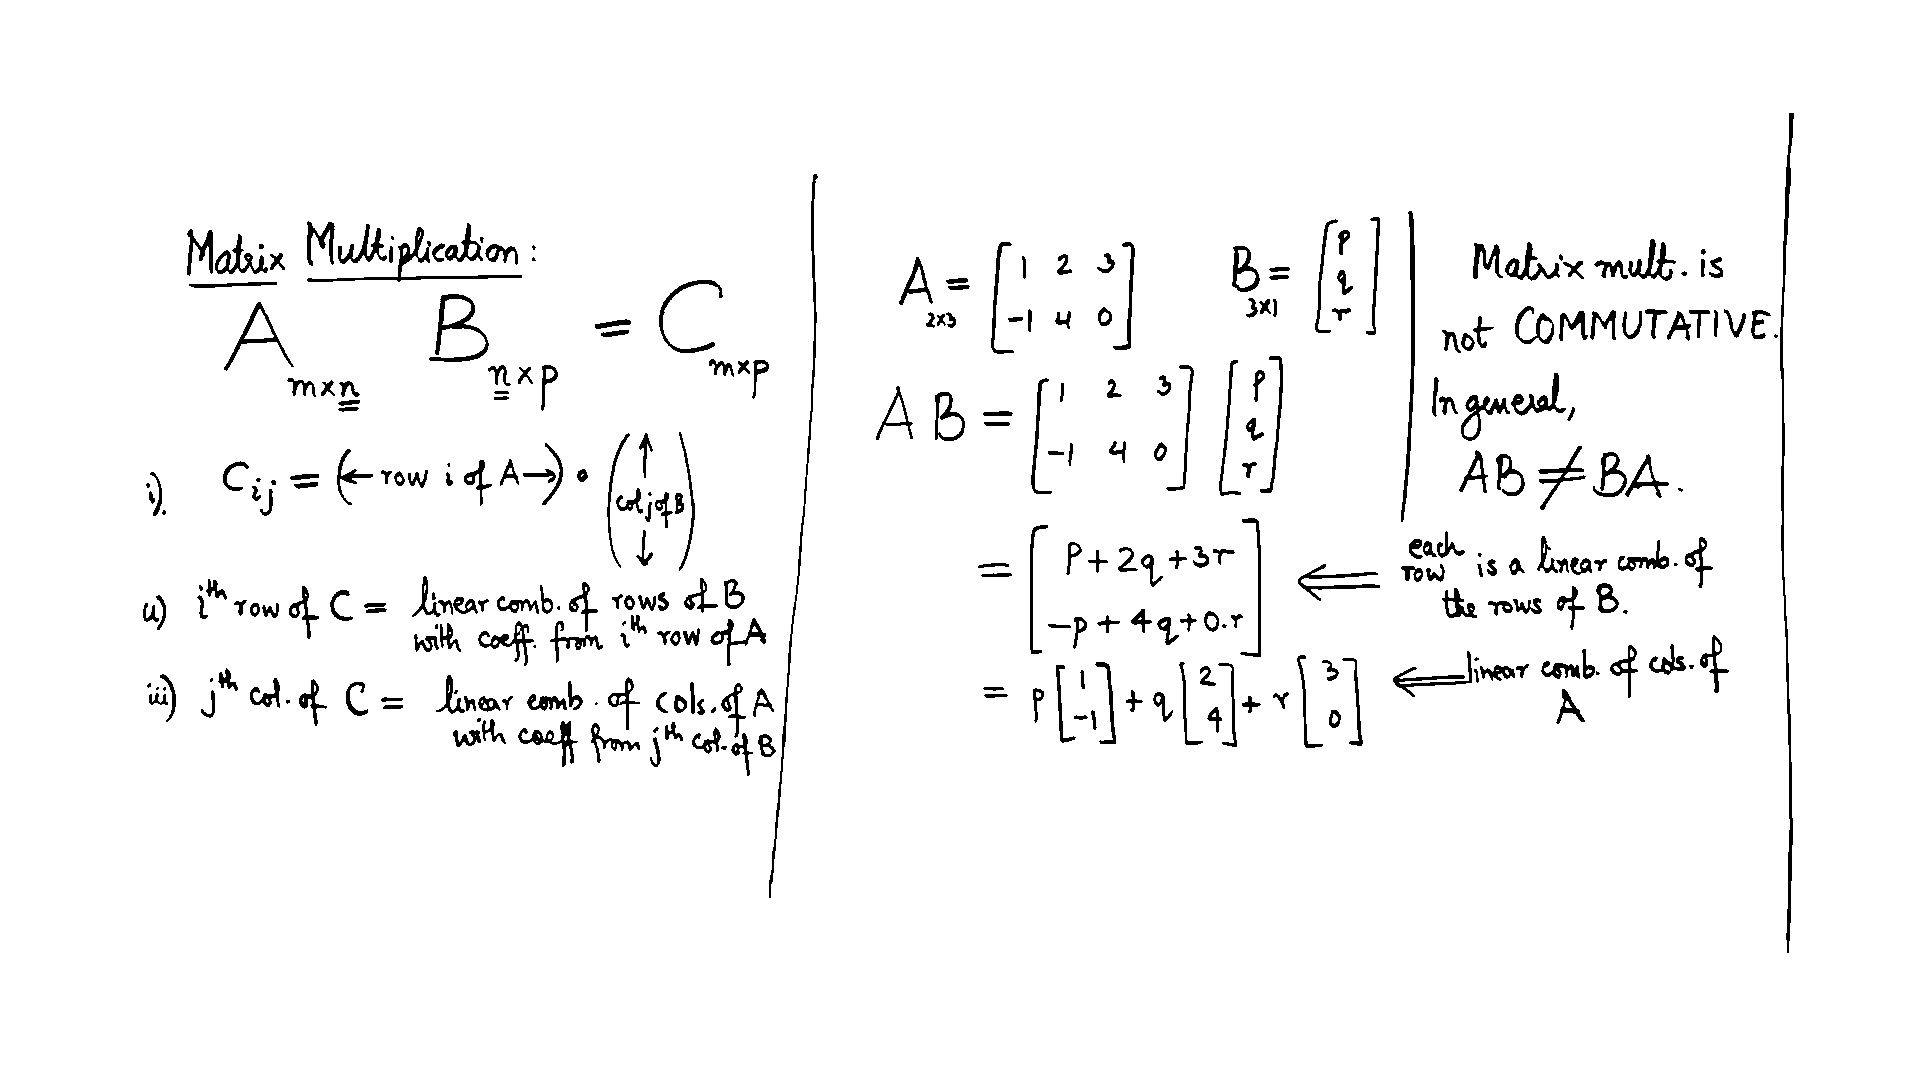 Matrix Multiplication:
A_{m×n} B_{n×p} = C_{m×p}
i). C_{ij} = (← row i of A →) • (↑ col j of B ↓)
ii) i^{th} row of C = linear comb. of rows of B
with coeff. from i^{th} row of A
iii) j^{th} col. of C = linear comb. of cols. of A
with coeff from j^{th} col. of B
A_{2×3} = [1 2 3; -1 4 0] B_{3×1} = [p; q; r]
AB = [1 2 3; -1 4 0] [p; q; r]
= [p+2q+3r; -p+4q+0.r] ⇐ each row is a linear comb. of
the rows of B.
= p[1; -1] + q[2; 4] + r[3; 0] ⇐ linear comb. of cols. of
A
Matrix mult. is
not COMMUTATIVE.
In general,
AB ≠ BA.